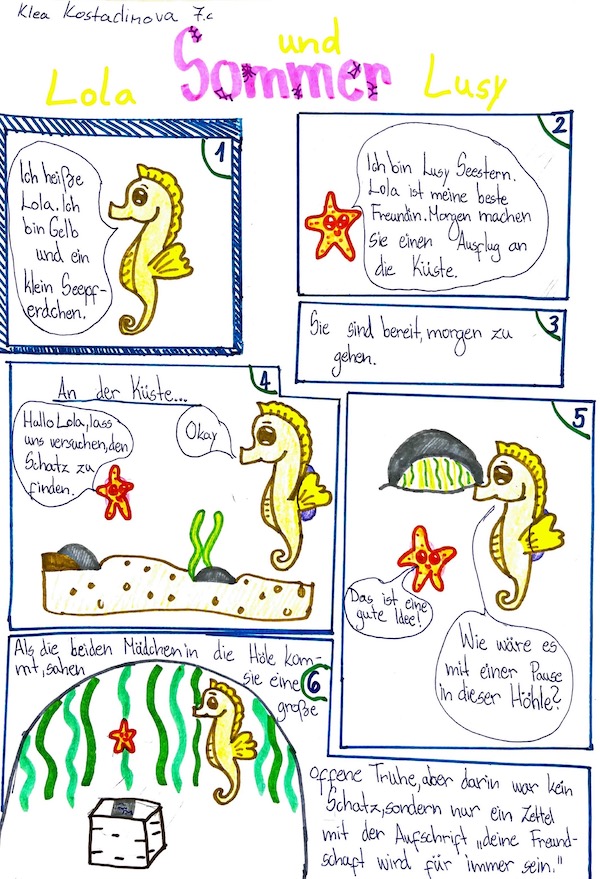 Klea Kostadinova 7.c
Lola
Sommer
und
Lusy
1
Ich heiße
Lola. Ich
bin Gelb
und ein
klein Seepf-
erdchen.
2
Ich bin Lusy Seestern.
Lola ist meine beste
Freundin. Morgen machen
sie einen Ausflug an
die Küste.
3
Sie sind bereit, morgen zu
gehen.
4
An der Küste...
Hallo Lola, lass
uns versuchen, den
Schatz zu
finden.
Okay
5
Wie wäre es
mit einer Pause
in dieser Höhle?
Das ist eine
gute Idee!
6
Als die beiden Mädchen in die Höle kom-
mt, sahen sie eine
große
offene Truhe, aber darin war kein
Schatz, sondern nur ein Zettel
mit der Aufschrift „deine Freund-
schaft wird für immer sein."